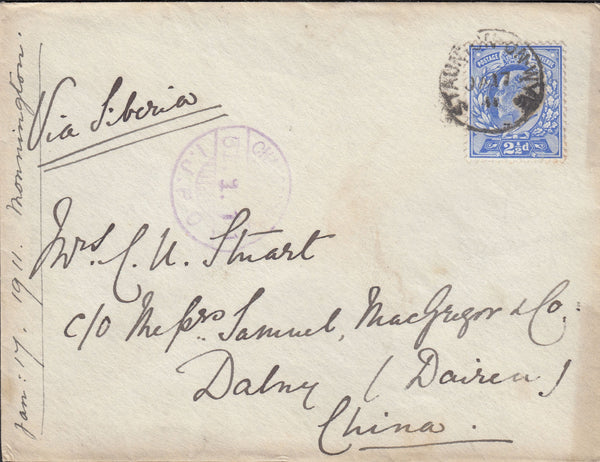 Via Siberia
Mrs. C. U. Stuart
c/o Messrs Samuel, MacGregor & Co.
Dalny (Dairen)
China.
Jan: 17. 1911. Monnington.
POSTAGE
2½d
I.J.P.O